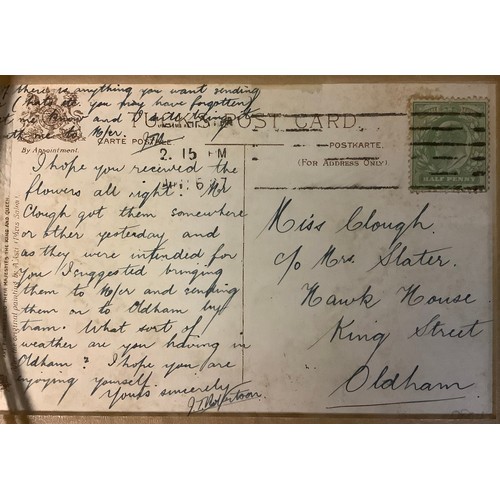 there is anything you want sending
(hats etc. you may have forgotten)
TUCK'S POST CARD.
CARTE POSTALE
POSTKARTE.
(FOR ADDRESS ONLY.)
By Appointment.
2. 15 PM
HALF PENNY
I hope you received the
flowers all right? Mr
Clough got them somewhere
or other yesterday and
as they were intended for
you I suggested bringing
them to M/cr and sending
them on to Oldham by
tram. What sort of
weather are you having in
Oldham? I hope you are
enjoying yourself.
Yours sincerely
Miss Clough.
c/o Mrs. Slater.
Hawk House.
King Street
Oldham.